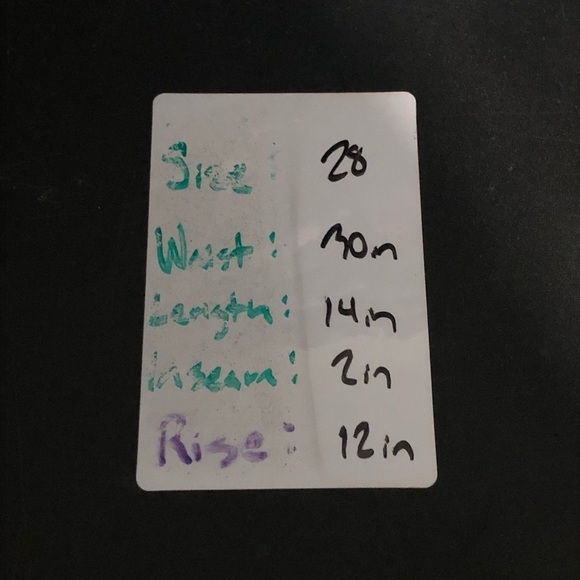 Size: 28
Waist: 30in
Length: 14in
Inseam: 2in
Rise: 12in